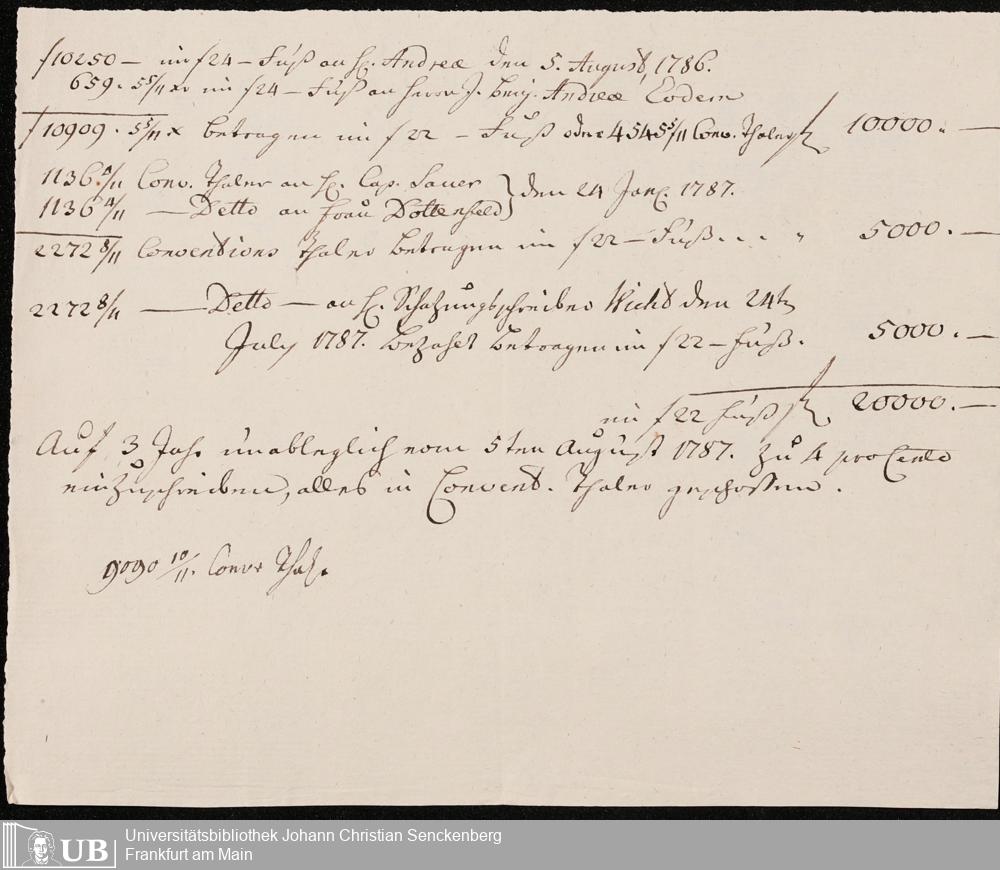 f10250 — im f24 – Fuß an H. Andreæ den 5. August, 1786.
659. 5 5/11 xr im f24 – Fuß an Herrn J. Benj. Andreæ Eodem
f10909. 5 5/11 x betragen im f22 – Fuß oder 4545 5/11 Conv. Thaler f 10000. —
1136 4/11 Conv. Thaler an H. Cap. Sauer } den 24 Jan. 1787.
1136 4/11 — Detto an Frau Dottenfeld
2272 8/11 Conventions Thaler betragen im f22 – Fuß. . . " 5000. —
2272 8/11 — Detto — an H. Schatzungsschreiber Wicht den 24t
July 1787. bezahlt betragen im f22 – Fuß. 5000. —
im f22 Fuß f 20000. —
Auf 3 Jahr unableglich vom 5ten August 1787. zu 4 pro Cento
einzuschreiben, alles in Convent. Thaler geschossen.
9090 10/11. Conv Thal.
UB
Universitätsbibliothek Johann Christian Senckenberg
Frankfurt am Main